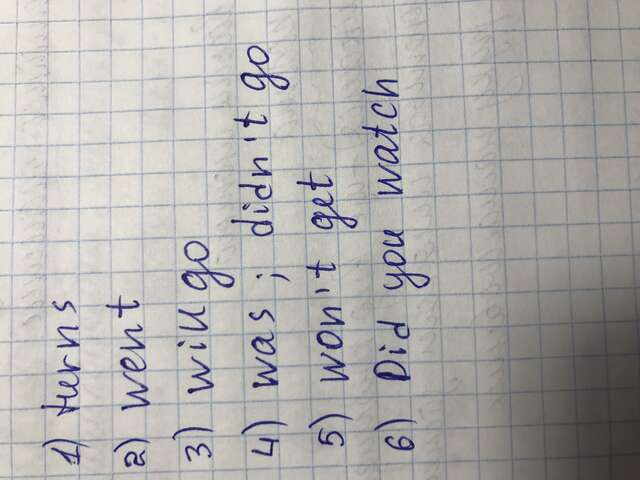 1) turns
2) went
3) will go
4) was ; didn't go
5) won't get
6) Did you watch